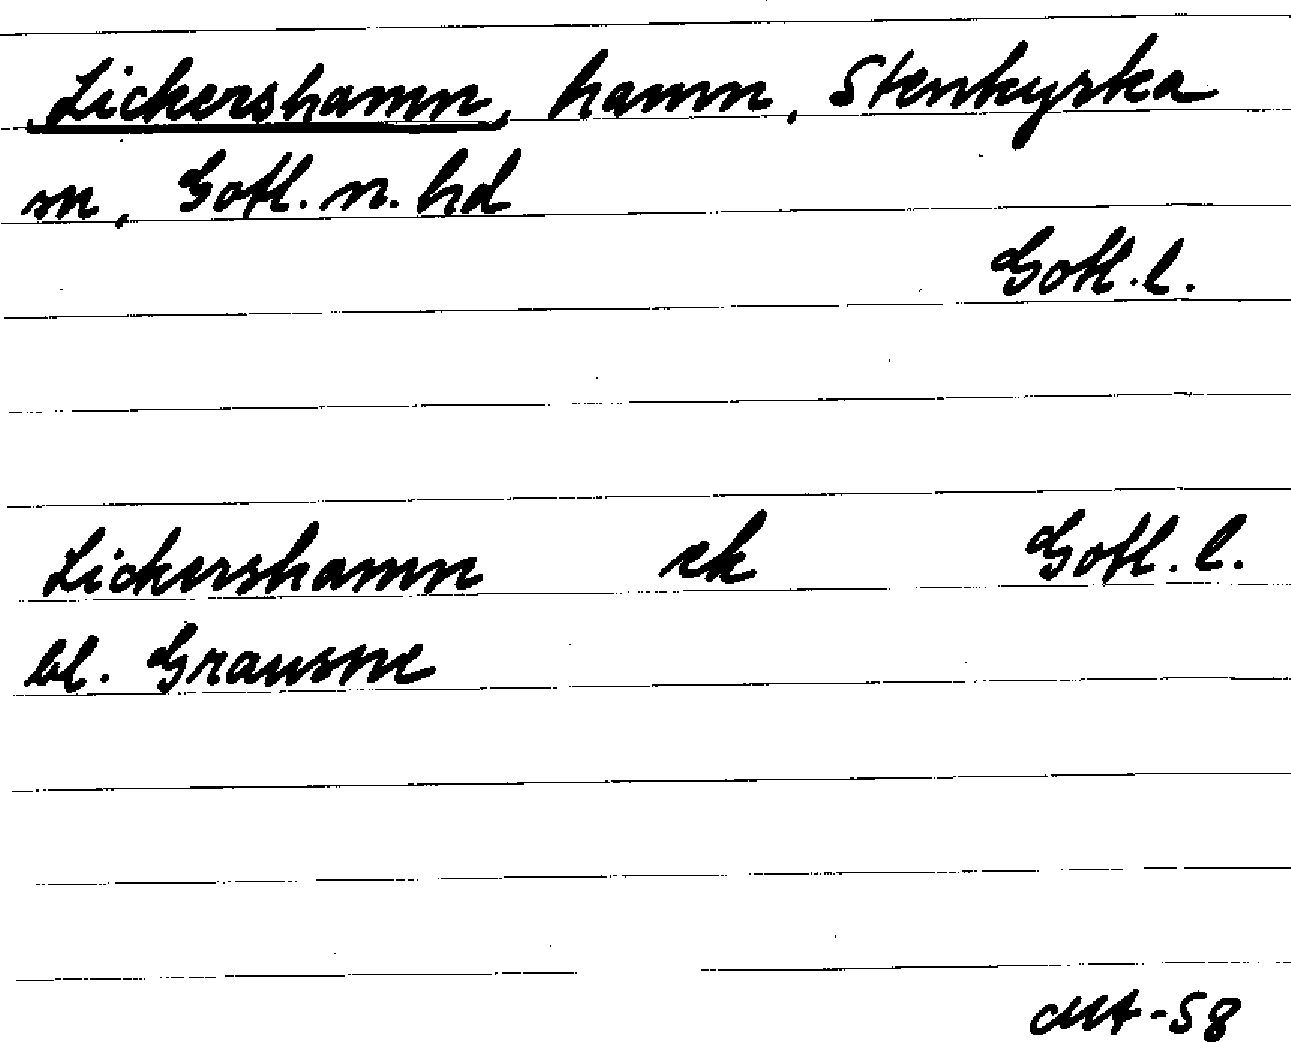 Lickershamn, hamn, Stenkyrka
sn, Gotl. n. hd
Gotl. l.
Lickershamn ek Gotl. l.
bl. Grausne